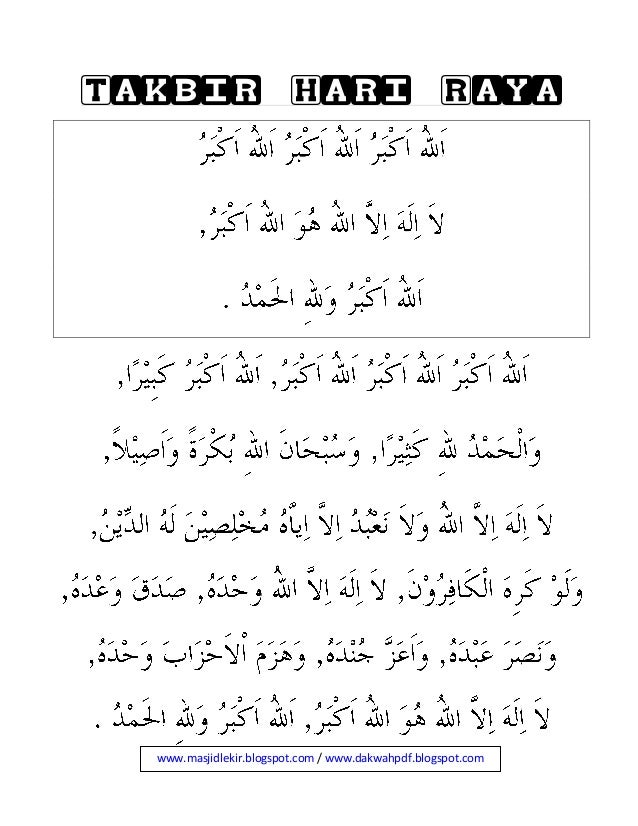 TAKBIR HARI RAYA
اَللهُ اَكْبَرُ اَللهُ اَكْبَرُ اَللهُ اَكْبَرُ
لاَ اِلَهَ اِلاَّ اللهُ هُوَ اللهُ اَكْبَرُ,
اَللهُ اَكْبَرُ وَللهِ الحَمْدُ .
اَللهُ اَكْبَرُ اَللهُ اَكْبَرُ اَللهُ اَكْبَرُ, اَللهُ اَكْبَرُ كَبِيْرًا,
وَالْحَمْدُ للهِ كَثِيْرًا, وَسُبْحَانَ اللهِ بُكْرَةً وَاَصِيْلاً,
لاَ اِلَهَ اِلاَّ اللهُ وَلاَ نَعْبُدُ اِلاَّ اِيَّاهُ مُخْلِصِيْنَ لَهُ الدِّيْنُ,
وَلَوْ كَرِهَ الْكَافِرُوْنَ, لاَ اِلَهَ اِلاَّ اللهُ وَحْدَهُ, صَدَقَ وَعْدَهُ,
وَنَصَرَ عَبْدَهُ, وَاَعَزَّ جُنْدَهُ, وَهَزَمَ اْلاَحْزَابَ وَحْدَهُ,
لاَ اِلَهَ اِلاَّ اللهُ هُوَ اللهُ اَكْبَرُ, اَللهُ اَكْبَرُ وَللهِ الحَمْدُ .
www.masjidlekir.blogspot.com / www.dakwahpdf.blogspot.com